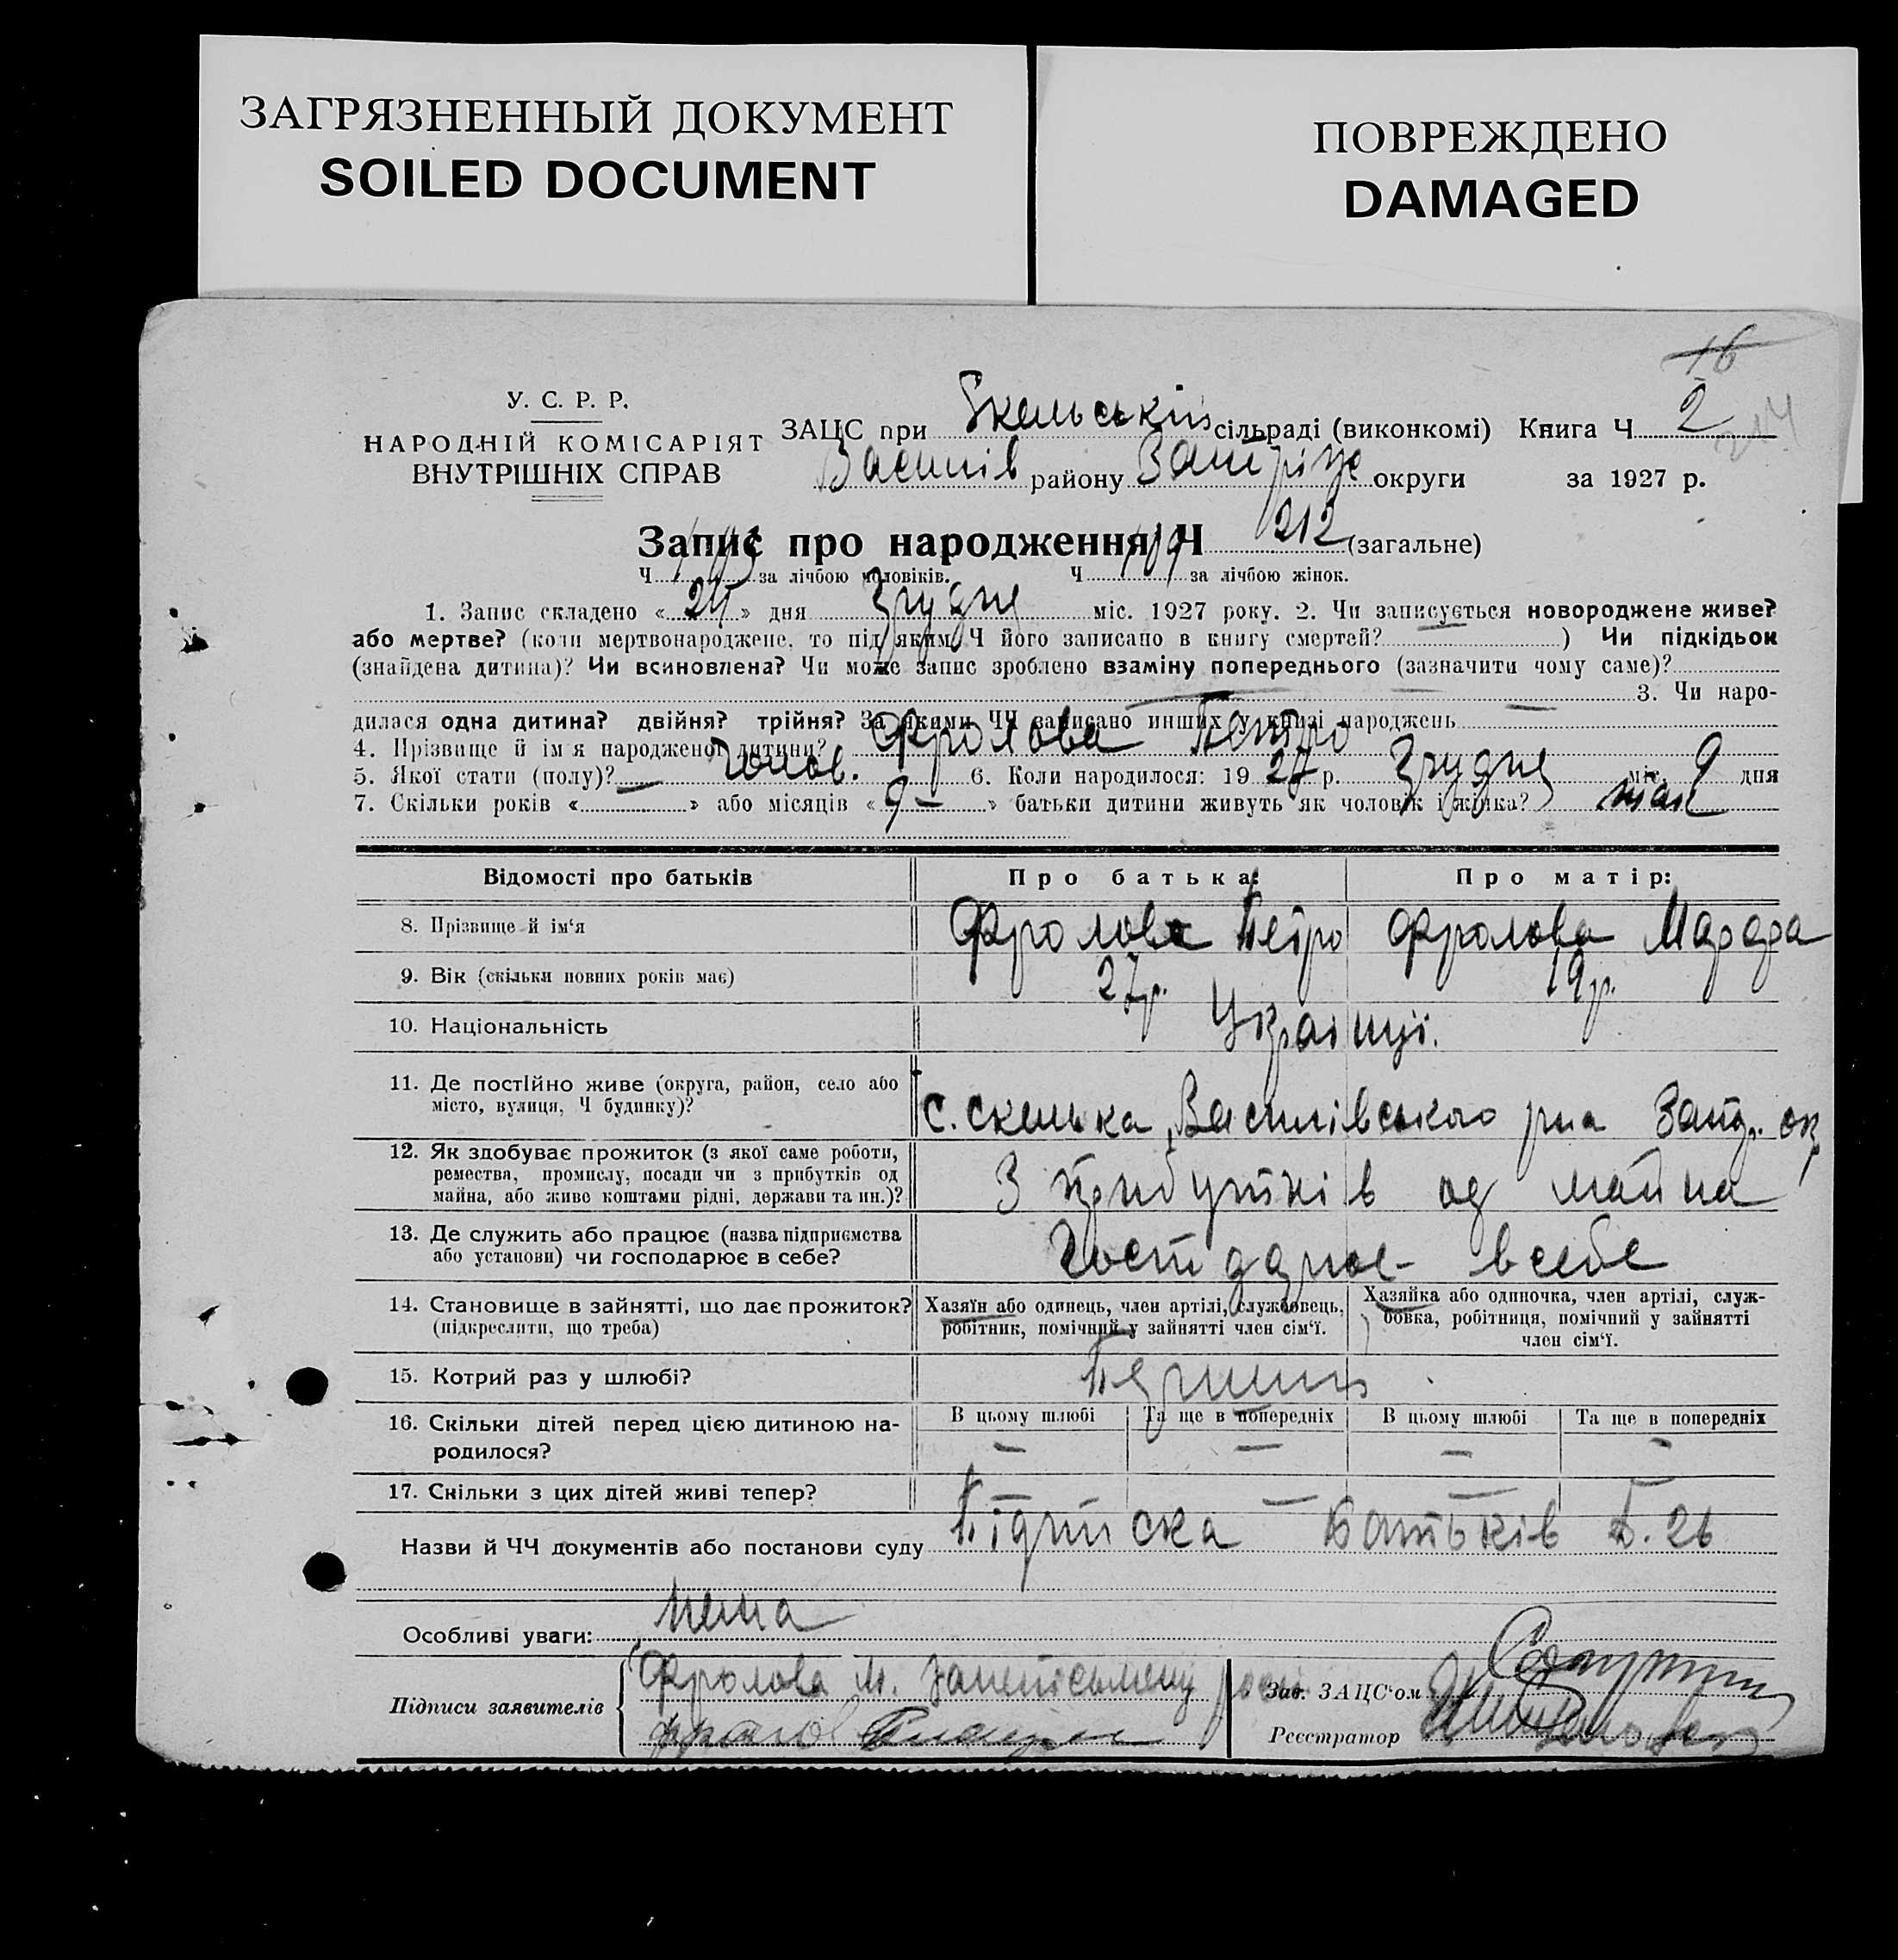 ЗАГРЯЗНЕННЫЙ ДОКУМЕНТ
SOILED DOCUMENT
ПОВРЕЖДЕНО
DAMAGED
16
У. С. Р. Р.
НАРОДНІЙ КОМІСАРІЯТ
ВНУТРІШНІХ СПРАВ
ЗАЦС при Скельській сільраді (виконкомі) Книга Ч 2
214
Василів району Запоріж округи за 1927 р.
Запис про народження Ч 212 (загальне)
Ч 103 за лічбою чоловіків. Ч 109 за лічбою жінок.
1. Запис складено « 24 » дня Грудня міс. 1927 року. 2. Чи записується новороджене живе?
або мертве? (коли мертвонароджене, то під яким Ч його записано в книгу смертей? ) Чи підкідьок
(знайдена дитина)? Чи всиновлена? Чи може запис зроблено взаміну попереднього (зазначити чому саме)?
3. Чи наро-
дилася одна дитина? двійня? трійня? За якими ЧЧ записано инших у книзі народжень
4. Прізвище й ім'я народженої дитини? Фролова Петро
5. Якої стати (полу)? — чолов. 6. Коли народилося: 19 27 р. Грудня міс. 9 дня
7. Скільки років « » або місяців « 9 — » батьки дитини живуть як чоловік і жінка? так
Відомості про батьків Про батька: Про матір:
8. Прізвище й ім'я Фролова Петро Фролова
9. Вік (скільки повних років має) 27р. 19р.
10. Національність Українці.
11. Де постійно живе (округа, район, село або
місто, вулиця, Ч будинку)? с. Скелька, Василівського р-на Запор. окр
12. Як здобуває прожиток (з якої саме роботи,
ремества, промислу, посади чи з прибутків од
майна, або живе коштами рідні, держави та ин.)? З прибутків од майна
13. Де служить або працює (назва підприємства
або установи) чи господарює в себе? Господарює в себе
14. Становище в зайнятті, що дає прожиток?
(підкреслити, що треба)
Хазяїн або одинець, член артілі, службовець,
робітник, помічний у зайнятті член сім'ї.
Хазяйка або одиночка, член артілі, служ-
бовка, робітниця, помічний у зайнятті
член сім'ї.
15. Котрий раз у шлюбі? Перший
16. Скільки дітей перед цією дитиною на-
родилося?
В цьому шлюбі Та ще в попередніх В цьому шлюбі Та ще в попередніх
— — — —
17. Скільки з цих дітей живі тепер? — — — —
Назви й ЧЧ документів або постанови суду Підписка батьків
Особливі уваги: Нема
Підписи заявителів Фролова М.
Зав. ЗАЦС'ом
Реєстратор